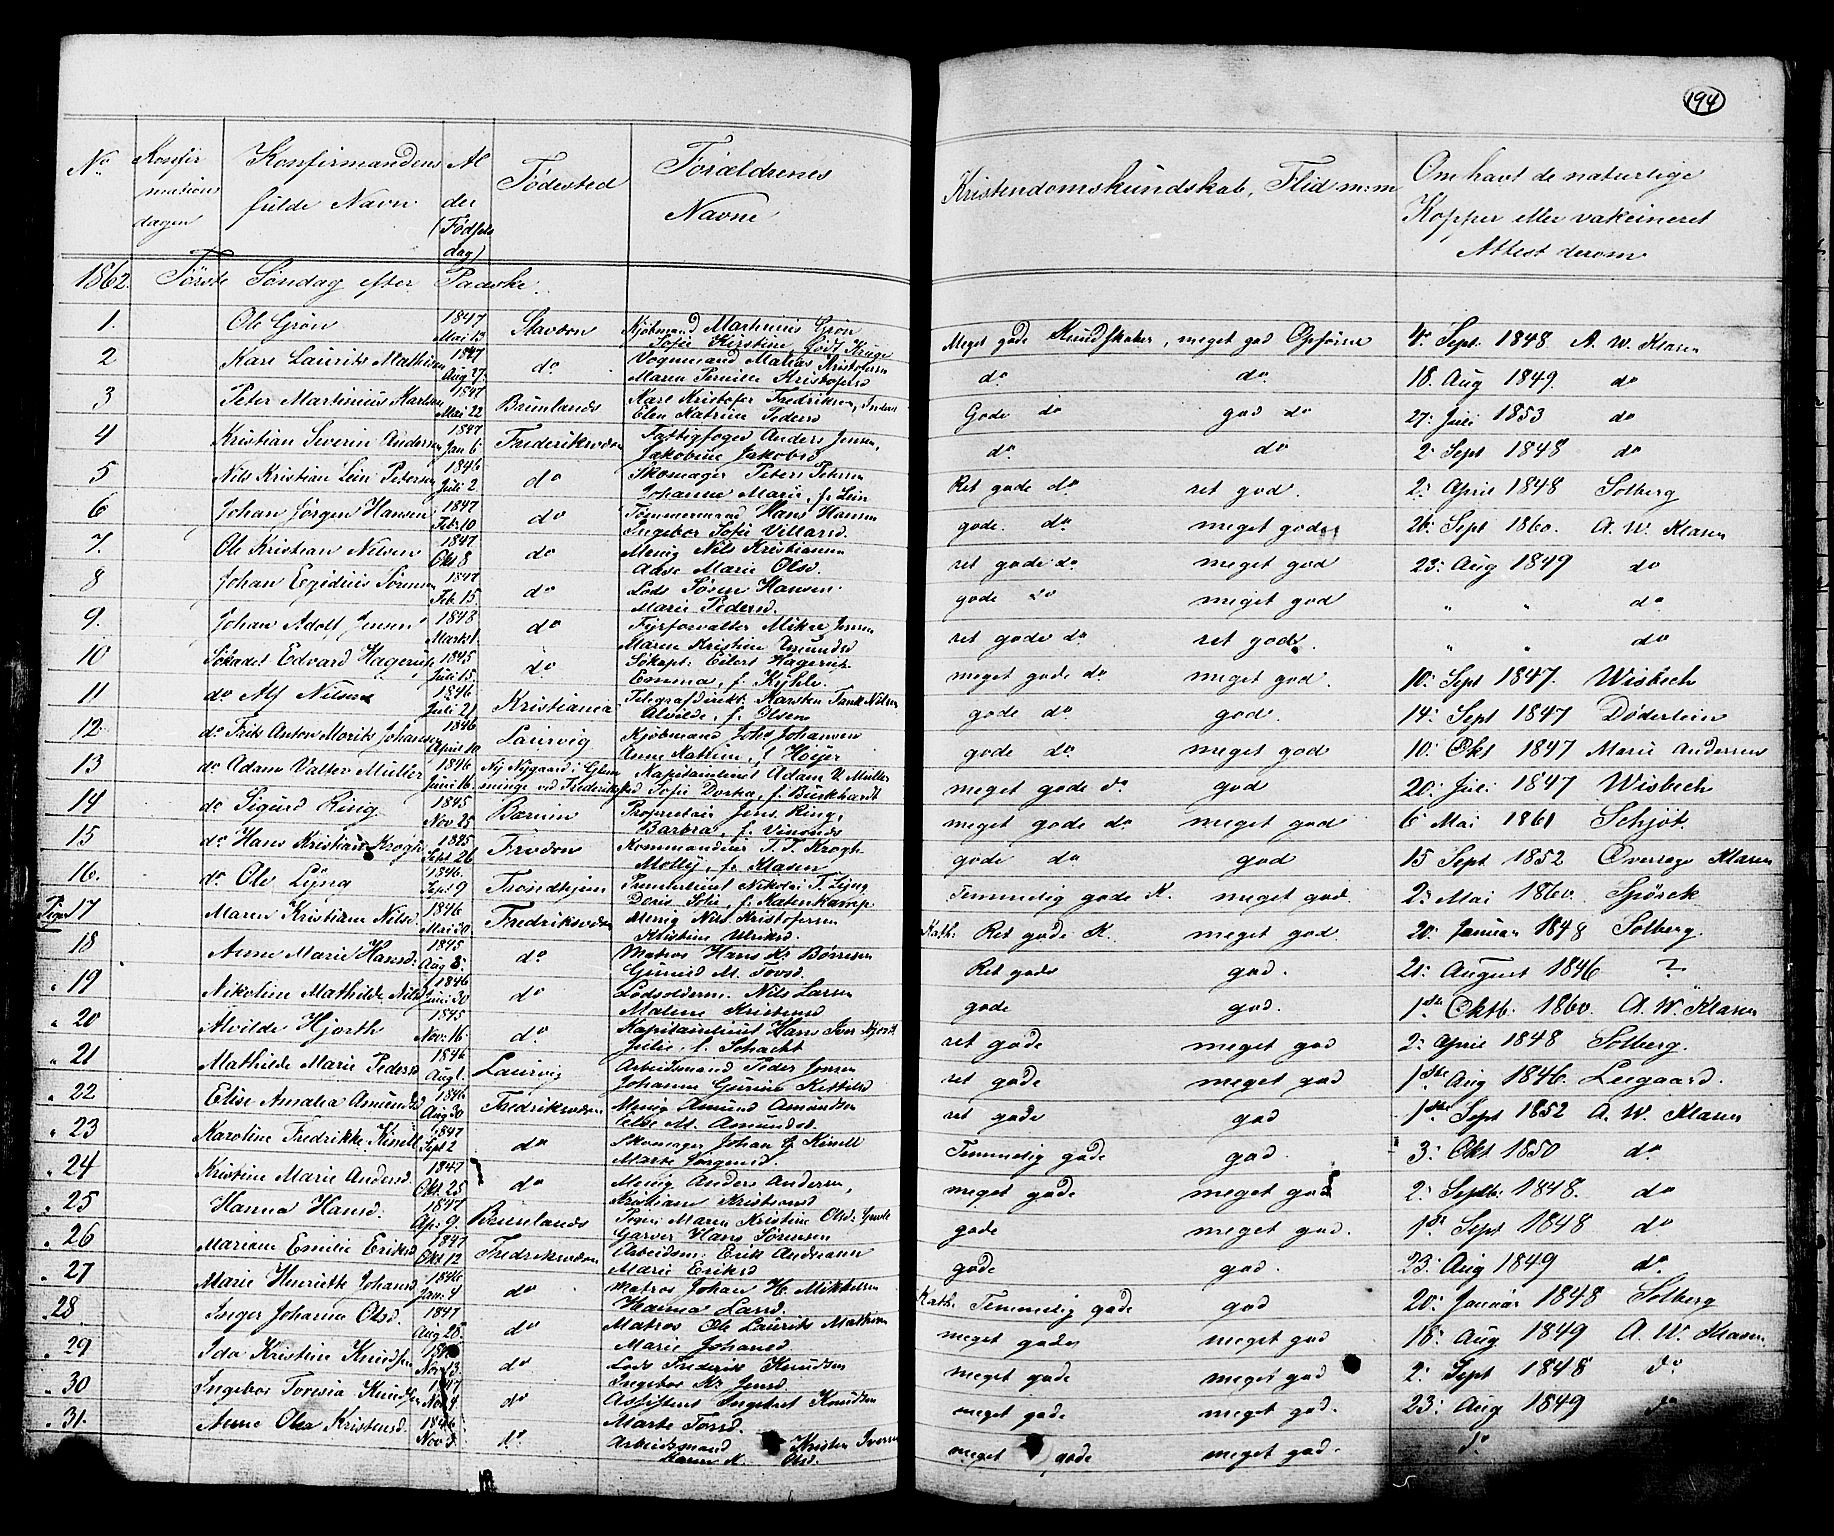 194
No Konfirmationsdagen Konfirmandens fulde Navn Alder (Fødselsdag) Fødested Forældrenes Navne Kristendomskundskab, Flid m:m Om havt de naturlige Kopper eller vakcineret Attest derom
1862. Første Søndag efter Paaske.
1. Ole Grøn 1847 Mai 13 Stavern Kjøbmand Martinius Grøn Sofie Kirstine født Kruge Meget gode Kundskaber, meget god Opførsel 4de Sept 1848 A. W. Klasen
2 Karl Laurits Mathisen 1847 Aug 27. do Vognmand Matias Kristofersen Maren Pernille Kristofersd do do 18. Aug 1849. do
3 Peter Martinius Karlsen 1847 Mai 22 Brunlands Karl Kristofer Fredriksen, Elen Katrine Pedersd Gode do god do 27: Juli 1853 do
4 Kristian Severin Andersen 1847 Jan 6: Frederiksvern Fattigfoged Anders Jensen, Jakobine Jakobsd do do 2: Sept 1848 do
5 Nils Kristian Lein Petersen 1846 Juli 2 do Skomager Peter Petersen Johanne Marie, f. Lein Ret gode do ret god. 2: April 1848 Solberg
6 Johan Jørgen Hansen 1847 Feb: 10 do Tømmermand Hans Hansen Ingebor Sofie Villarsd. gode. do meget gode 26: Sept 1860. A. W. Klasen
7. Ole Kristian Nilsen 1847 Okt 8 do Menig Nils Kristiansen Aase Marie Olsd. ret gode do meget god 23: Aug 1849 do
8 Johan Egidius Sørensen 1847 Feb. 15 do Lods Søren Hansen. Marie Pedersd. gode do meget god " " do
9. Johan Adolf Jensen 1848 Marts 1. do Fyrforvalter Mikael Jensen Maren Kristine Amundsd ret gode do ret god. " " do
10 Søkadet Edvard Hagerup 1845 Juli 15. do Søkapt: Eilert Hagerup. Emma, f. Kyhle. meget gode do meget god. 10: Sept 1847. Wisbech
11 do Alf Nilsen 1846 Juli 21 Kristiania Telegrafdirekt. Karsten Tank Nilsen Alvilde, f. Olsen gode do god. 14: Sept 1847 Døderlein
12. do Frits Anton Morits Johansen 1846 April 10 Laurvig Kjøbmand Johs Johansen Anne Katrine, f Høyer gode do meget god 10: Okt 1847 Marie Andersen
13 do Adam Valter Müller 1846 Juni 16 Ny Nygaard i Glemminge ved Frederiksstad Kapitainlieut Adam V. Müller Sofie Dortea, f. Burkhardt meget gode do god 20: Juli 1847 Wisbech
14 do Sigurd Ring 1845 Nov. 25 Bærum Proprietair Jens Ring, Barbra, f. Vinsnes meget gode do meget god 6: Mai 1861 Schjøt.
15 do Hans Kristian Krogh 1845 Sept 26 Kommandeur T. T. Krogh Molly, f. Klasen gode do god 15 Sept 1852 Overlæge Klasen
16. do Ole Lyng 1846. Sept 9 Trondhjem Premierlieut Nikolai T. Lyng Doris Sofie, f. Katenkamp Temmelig gode K. meget god. 2: Mai 1860. Sjørek
Piger 17 Maren Kristiane Nilsd 1846 Mai 30. Fredriksvern Menig Nils Kristofersen Kristine Ulriksd. Kath: Ret gode K. meget god 20: Januar 1848 Solberg.
" 18 Anne Marie Hansd. 1845 Aug 8: do Matros Hans Kr Børresen Gunild M. Torsd. Ret gode god. 21: August 1846 ?
" 19 Nikoline Mathilde Nilsd 1846 Juni 30 do Lodsolderm. Nils Larsen Malene Kristensd gode god. 1ste Oktb. 1860. A. W. Klasen
" 20 Alvilde Hjorth 1845 Nov: 16. do Kapitainlieut Hans Iver Hjorth Julie, f. Schacht ret gode meget god 2: April 1848 Solberg.
" 21 Mathilde Marie Pedersd 1846 Aug 1. Laurvig Arbeidsmand Peder Jensen Johanne Gurine Kittilsd ret gode meget god 1ste Aug 1846. Leegaard.
" 22 Elise Amalia Amundsd 1846 Aug 30 Fredriksvern Menig Amund Amundsen Else M. Amundsd. ret gode god 1ste Sept 1852 A. W. Klasen
" 23 Karoline Fredrikke Kinell 1847 Sept 2 do Skomager Johan f Kinell Marte Jørgensd. Temmelig gode god. 3: Okt 1850 do
" 24 Kristine Marie Andersd. 1847 Okt. 25 do Menig Anders Andersen, Kristiane Kristiansd meget gode meget god 2: Septb: 1848. do
" 25 Hanna Hansd. 1847 Apr: 9. Brunlands Pigen Maren Kristine Olsd: Garver Hans Sørensen gode meget god. 1ste Sept 1848 do
" 26 Mariane Emilie Eriksd 1847 Okt. 12 Fredriksvern Arbeidsm: Erik Andreasen Marie Eriksd gode god. 23: Aug 1849 do
" 27 Marie Henriette Johansd 1846 Jan: 4 do Matros Johan H. Mikkelsen Hanna Larsd. Kath: Temmelig gode god 20: Januar 1848 Solberg
" 28. Inger Johanne Olsd. 1847 Aug 28: do Matros Ole Laurits Mathisen Marie Johansd meget gode meget god 18: Aug 1849 A. W. Klasen
" 29 Ida Kristine Knudsen Nov: 13. do Lods Frederik Knudsen Ingebor Kr Jensd. meget gode meget god 2: Sept 1848 do
" 30 Ingebor Toresia Knudsen 1847 do Assistent Ingebret Knudsen Marte Torsd. meget gode meget god. 23: Aug 1849 do
" 31. Anne Olea Kristensd. 1846 Nov 3: do Arbeidsmand Kristen Iversen Maren K. Olsd. meget gode meget god. do